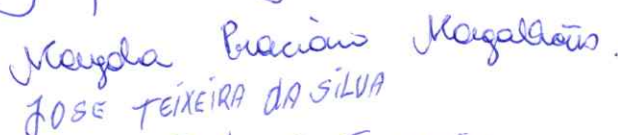 Magda Graciano Magalhães.
JOSE TEIXEIRA DA SILVA